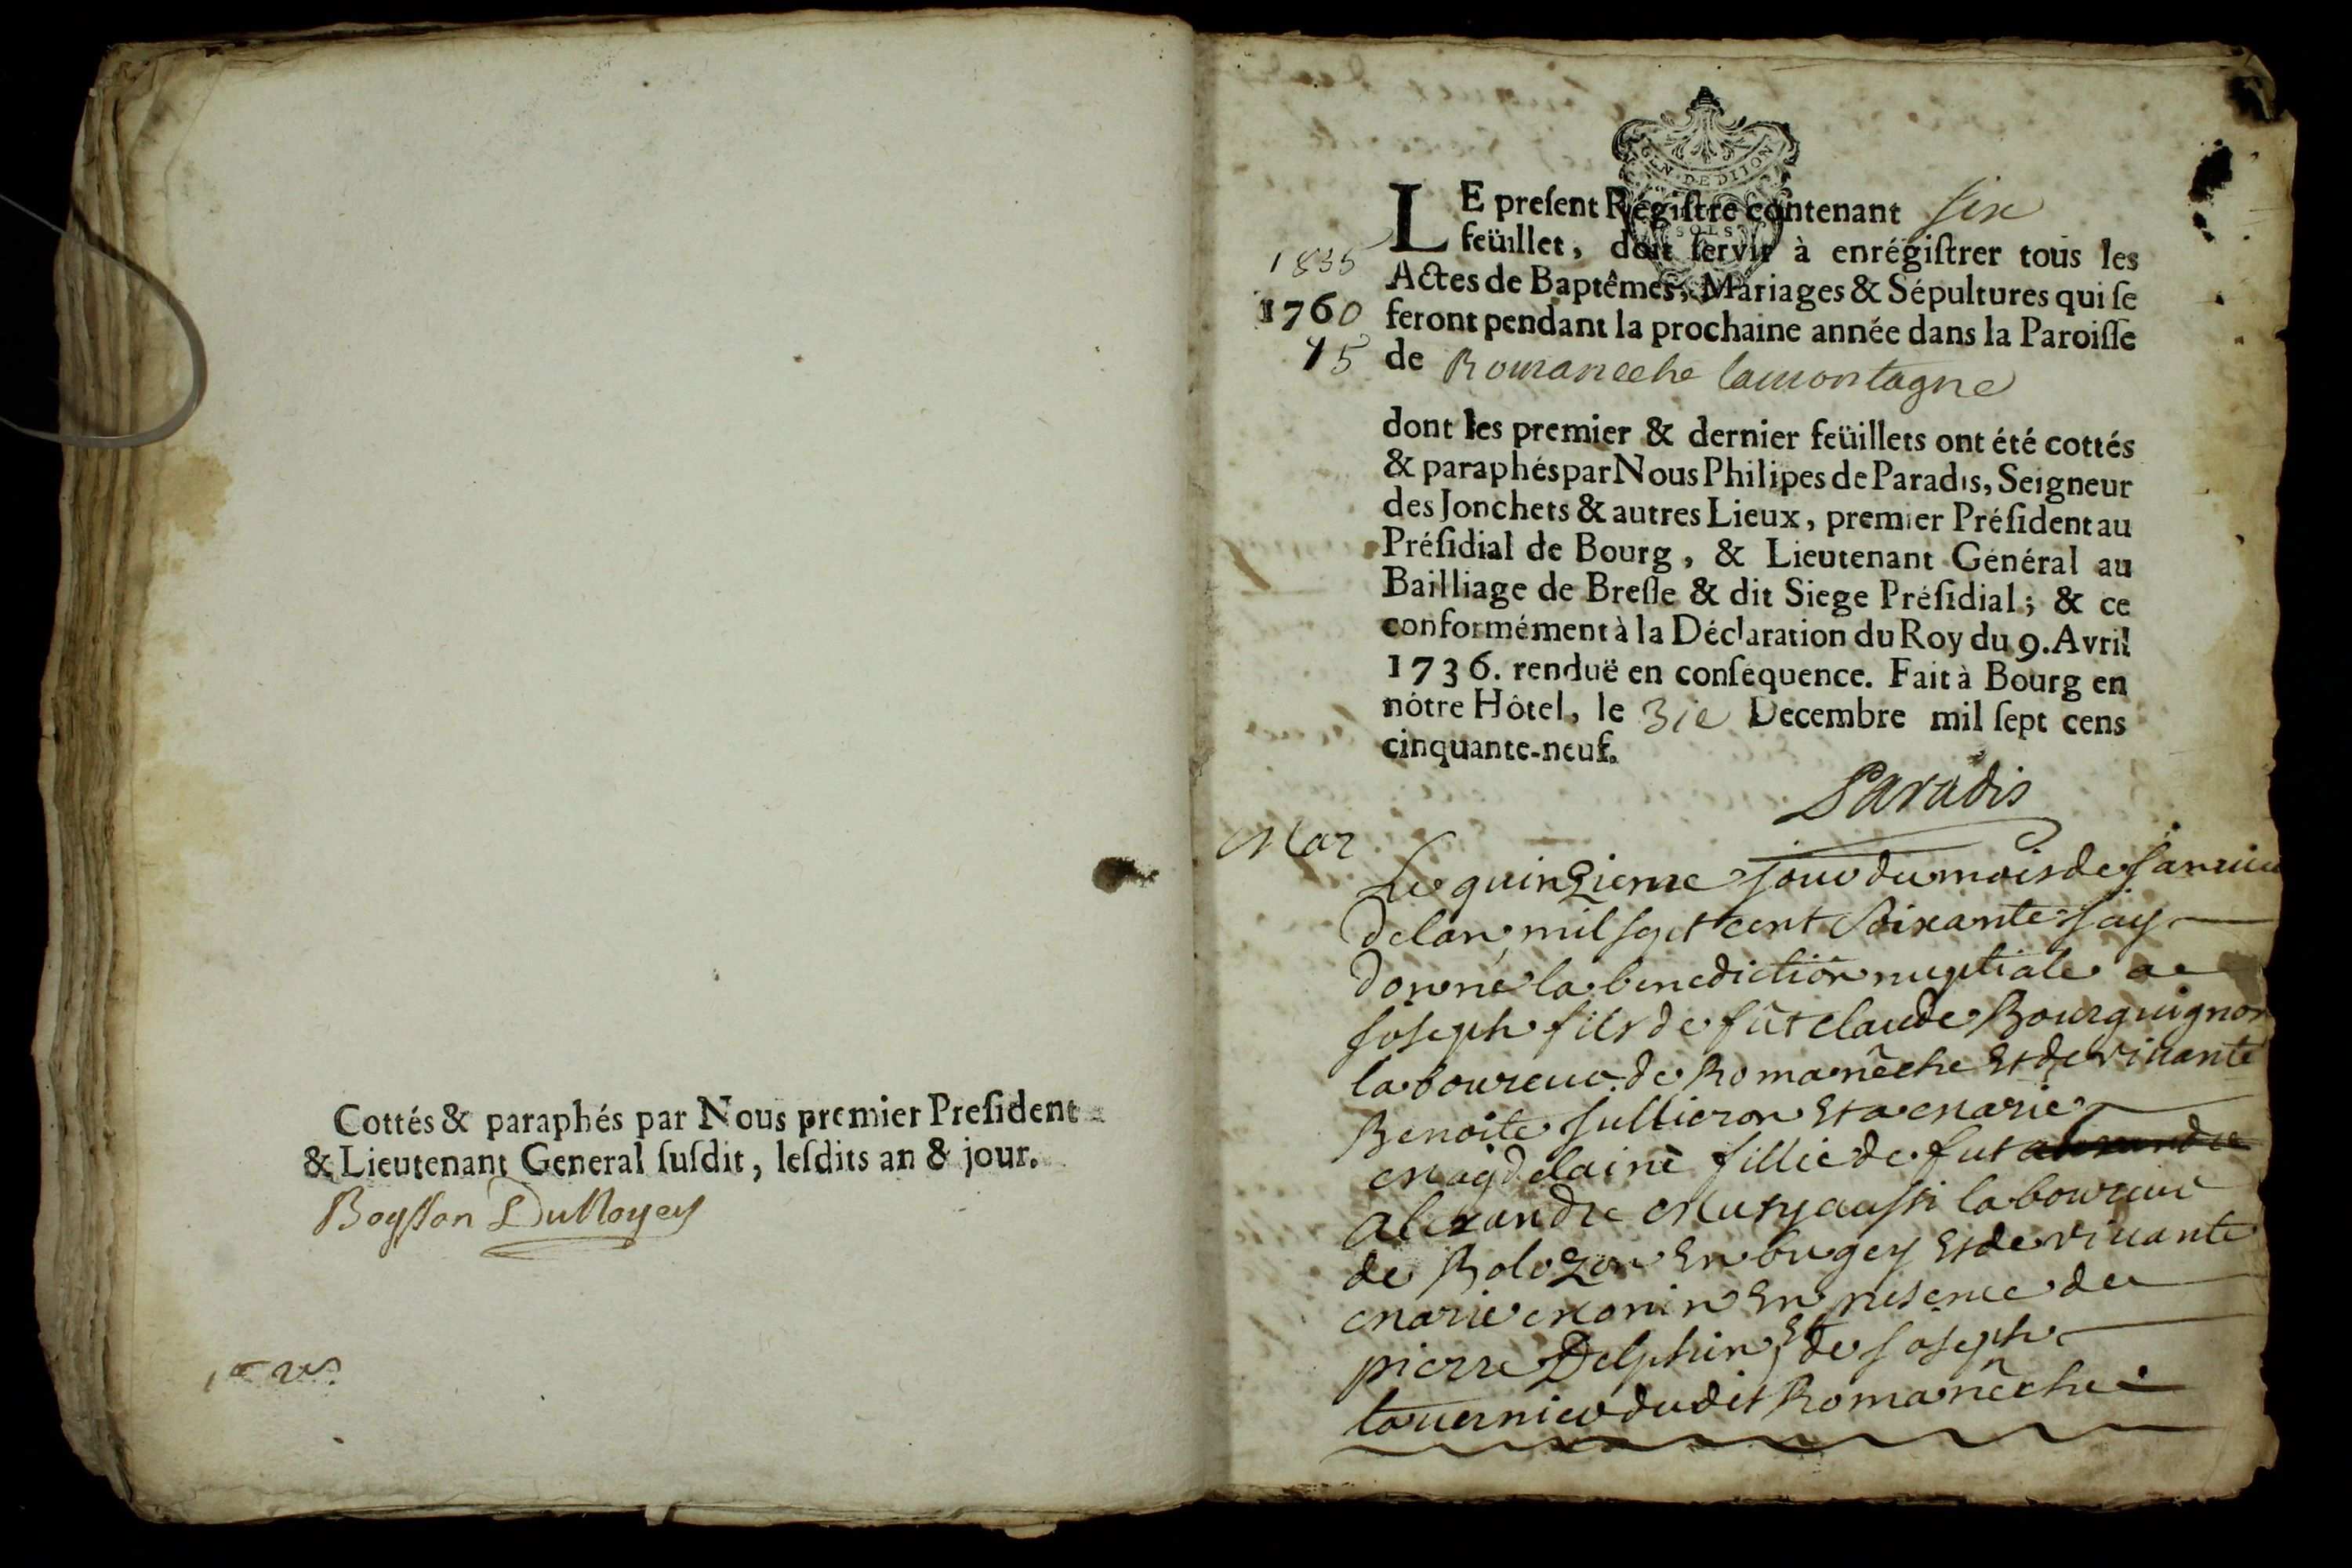 Cottés & paraphés par Nous premier Preſident
& Lieutenant General ſuſdit, leſdits an & jour.
GEN · DE DIJON
SOLS
LE preſent Régiſtre contenant six
feüillet, doit ſervir à enrégiſtrer tous les
Actes de Baptêmes, Mariages & Sépultures qui ſe
feront pendant la prochaine année dans la Paroiſſe
de Romaneche lamontagne
1835
1760
75
dont les premier & dernier feüillets ont été cottés
& paraphés par Nous Philipes de Paradis, Seigneur
des Jonchets & autres Lieux, premier Préſident au
Préſidial de Bourg, & Lieutenant Général au
Bailliage de Breſſe & dit Siege Préſidial; & ce
conformément à la Déclaration du Roy du 9. Avril
1736. renduë en conſéquence. Fait à Bourg en
nôtre Hôtel, le 31e Decembre mil ſept cens
cinquante-neuf.
Paradis
Mar
Le quinzieme jour du mois de Januier
delan mil sept cent Soixante jay
donné la benediction nuptiale a
joseph fils de fût claude Bourguignon
laboureur de Romanêche Et de viuante
Benoite Jullieron Et a marie
magdelaine fillie de fut alexandre
alexandre mury aussi laboureur
de Bolozon En bugey Et de viuante
marie monin En presence de
pierre Delphin Et de joseph
tauernier dudit Romanêche